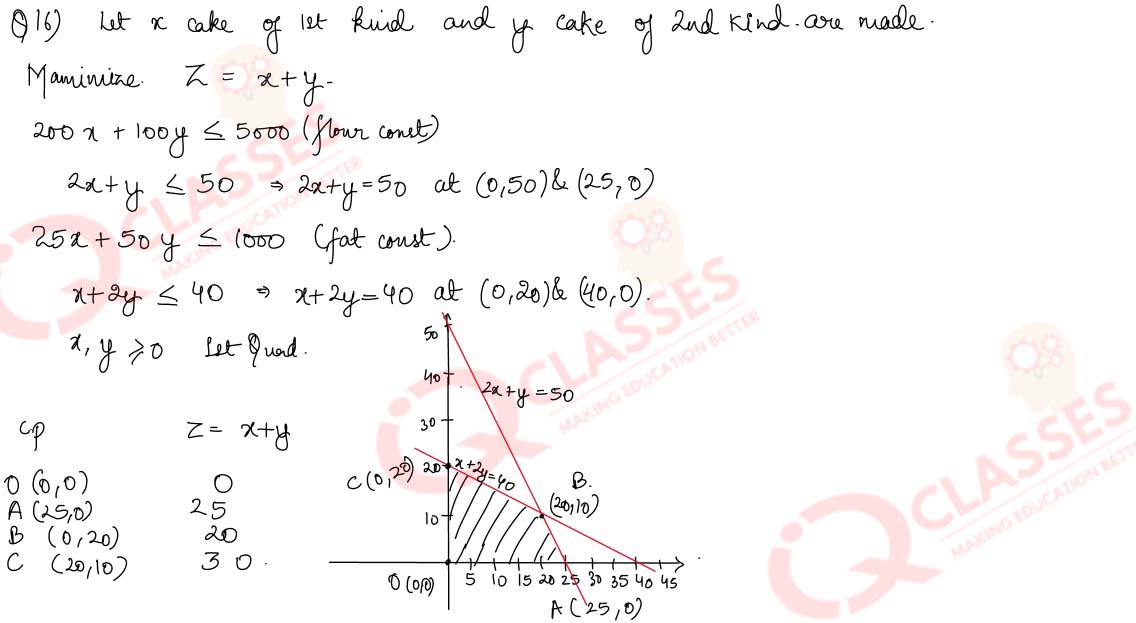 Q16) Let x cake of 1st kind and y cake of 2nd kind are made.
Maminize. Z = x+y.
200x + 100y ≤ 5000 (flour const)
2x+y ≤ 50 ⇒ 2x+y=50 at (0,50) & (25,0)
25x + 50y ≤ 1000 (fat const).
x+2y ≤ 40 ⇒ x+2y=40 at (0,20) & (40,0).
x, y ≥ 0 Ist Quad.
cp Z = x+y
O (0,0) 0
A (25,0) 25
B (0,20) 20
C (20,10) 30.
50
40
2x+y = 50
30
C (0,20) 20 x+2y=40
B.
(20,10)
10
O (0,0) 5 10 15 20 25 30 35 40 45
A (25,0)
IQ CLASSES
MAKING EDUCATION BETTER
IQ CLASSES
MAKING EDUCATION BETTER
IQ CLASSES
MAKING EDUCATION BETTER